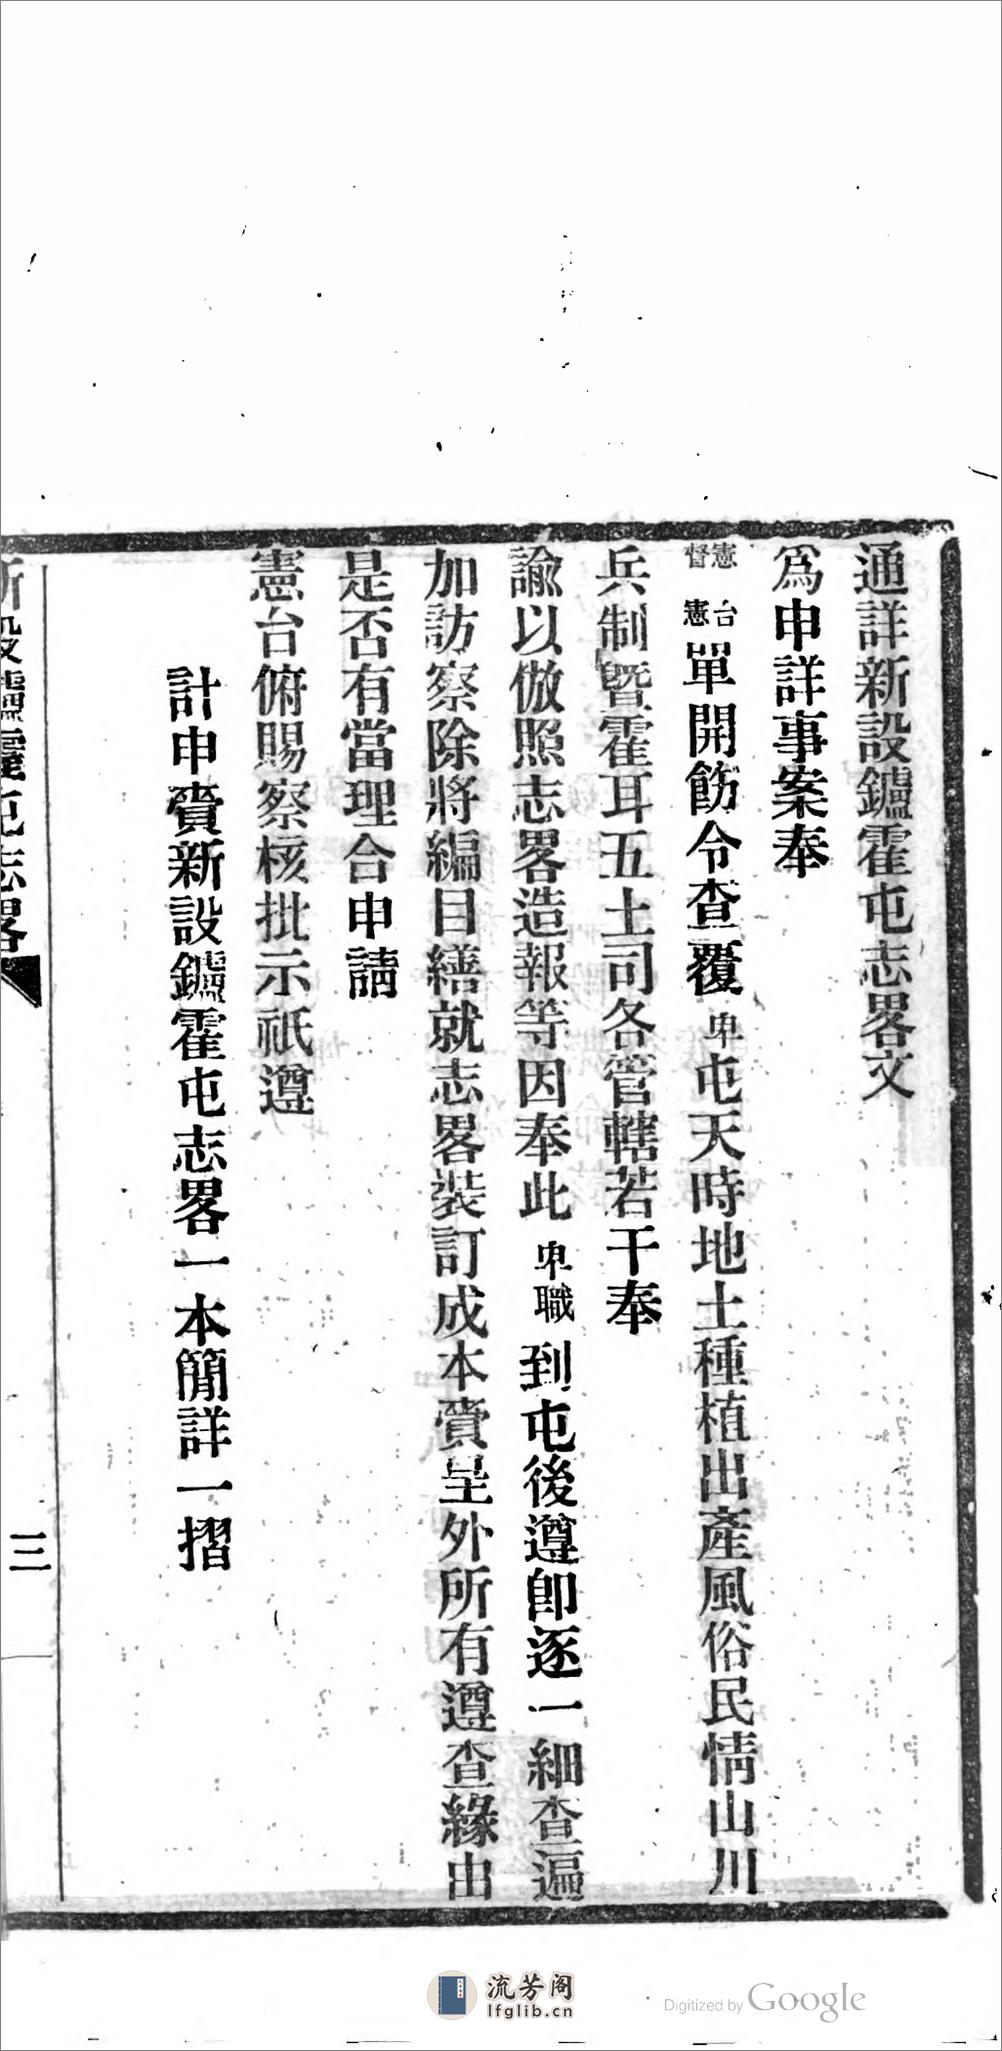 通詳新設鑪霍屯志畧文
爲申詳事案奉
憲台
督憲單開飭令查覆卑屯天時地土種植出產風俗民情山川
兵制暨霍耳五土司各管轄若干奉
諭以倣照志畧造報等因奉此卑職到屯後遵卽逐一細查遍
加訪察除將編目繕就志畧裝訂成本賫呈外所有遵查緣由
是否有當理合申請
憲台俯賜察核批示祇遵
計申賫新設鑪霍屯志畧一本簡詳一摺
新設鑪霍屯志畧
三
流芳阁
lfglib.cn
Digitized by Google